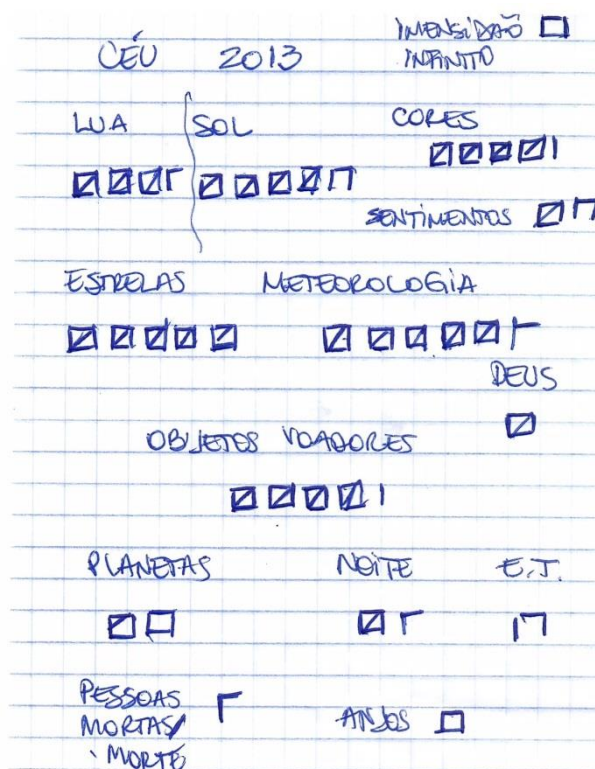 IMENSIDÃO
CÉU 2013 INFINITO
LUA SOL CORES
SENTIMENTOS
ESTRELAS METEOROLOGIA
DEUS
OBJETOS VOADORES
PLANETAS NOITE E.T.
PESSOAS
MORTAS/ ANJOS
MORTE